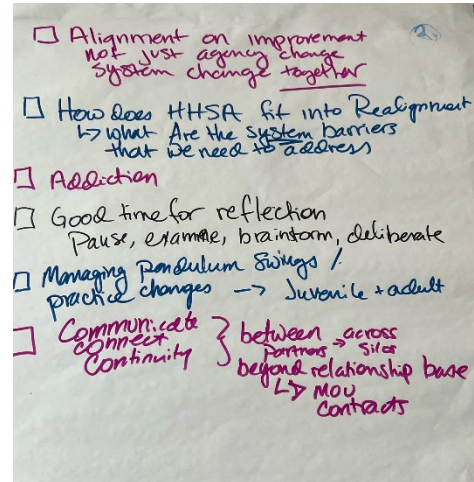 2
Alignment on improvement
not just agency change
System change together
How does HHSA fit into Realignment
↳ what Are the system barriers
that we need to address
Addiction
Good time for reflection
Pause, examine, brainstorm, deliberate
Managing Pendulum Swings /
practice changes → Juvenile + adult
Communicate
connect
Continuity
} between → across
partners silos
beyond relationship base
↳ MOU
Contracts